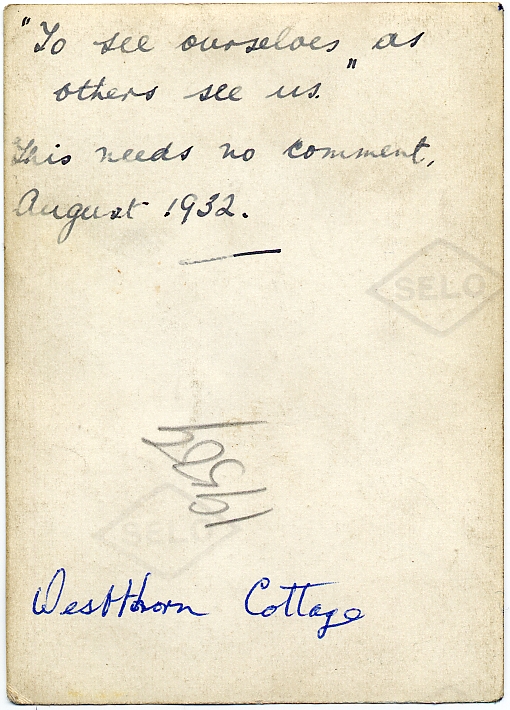 "To see ourselves as
others see us."
This needs no comment,
August 1932.
SELO
SELO
Westthorn Cottage